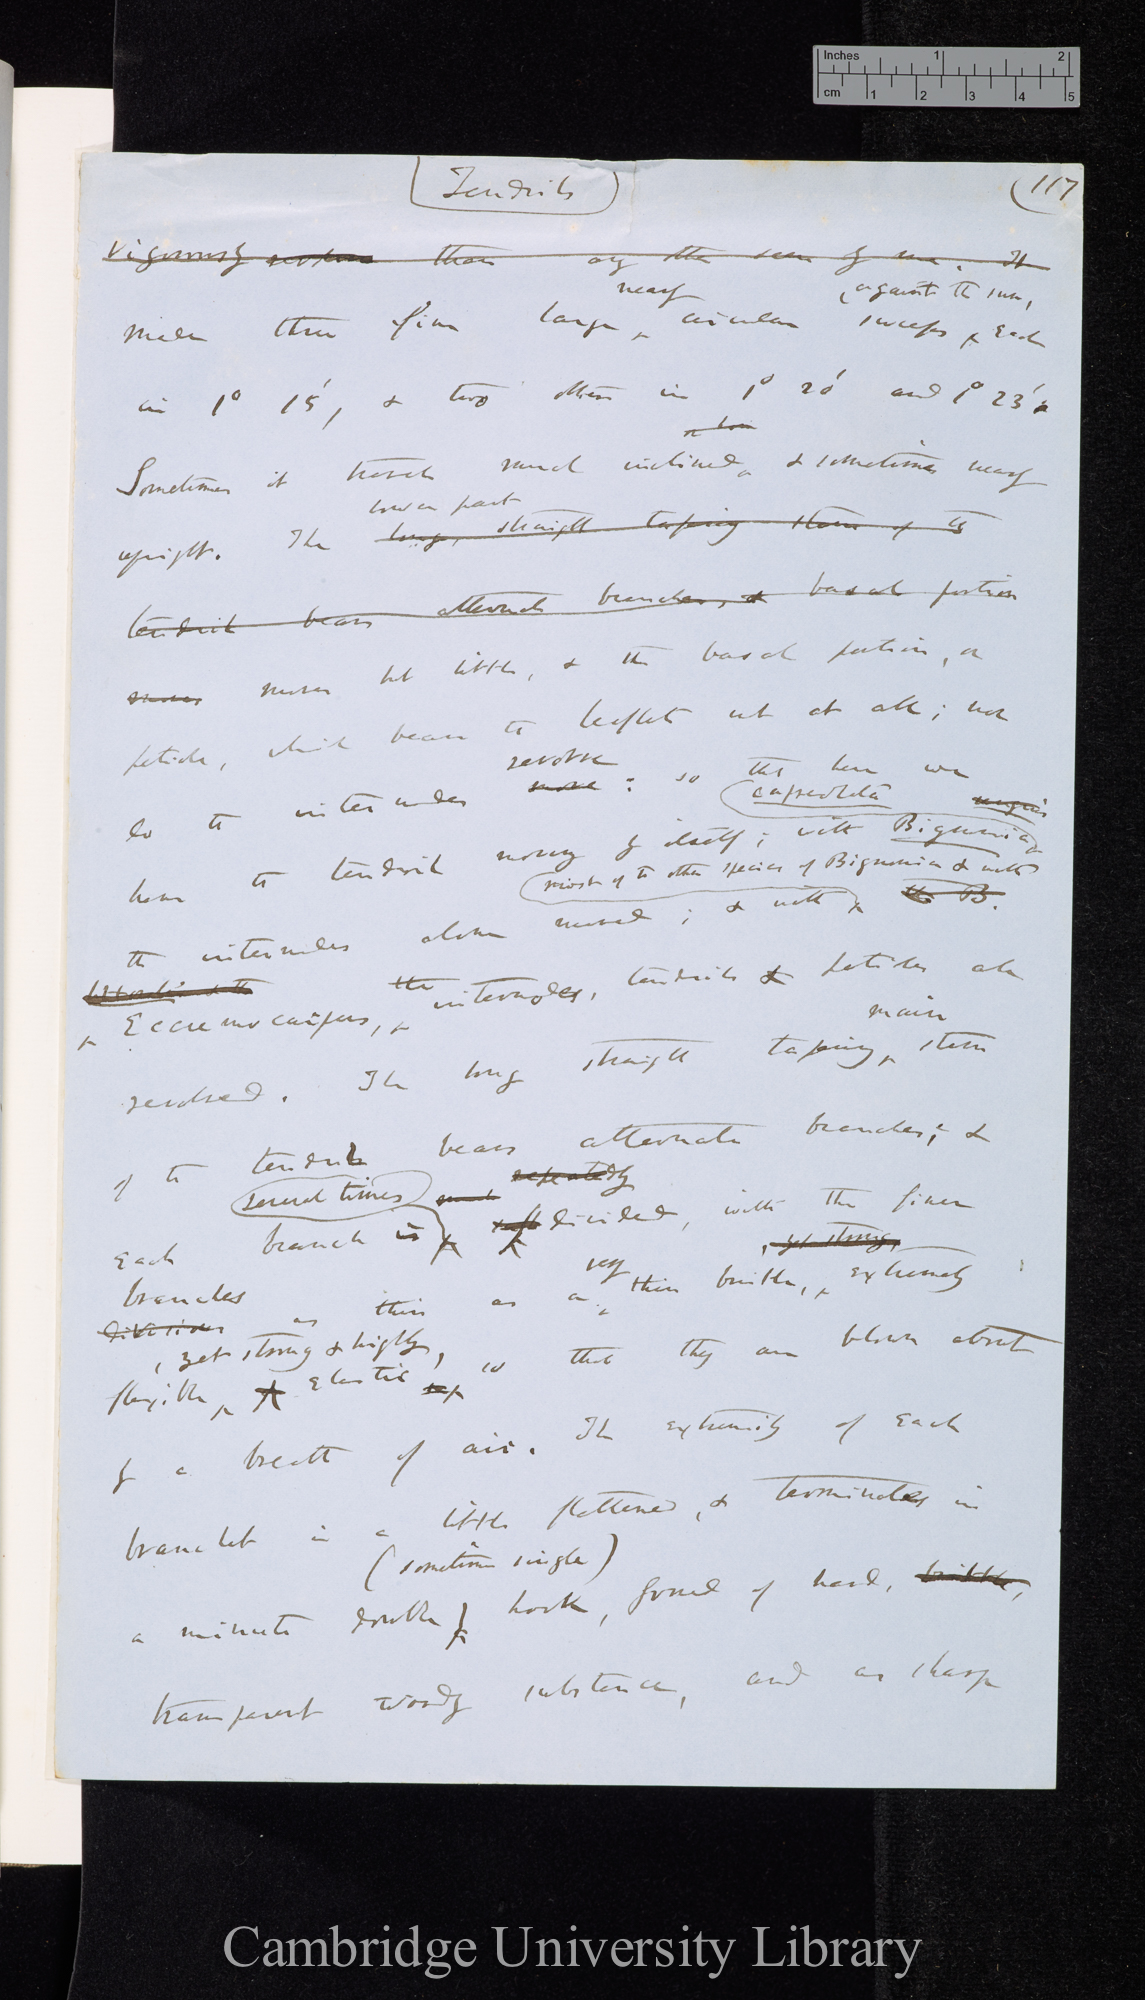 Inches 1 2
cm 1 2 3 4 5
(Tendrils)
(117
Vigorously than any other seen by me. It
nearly (against the sun,
made three fine large circular sweeps, each
in 1° 15', & two others in 1° 20' and 1° 23'.
Sometimes it travels much inclined, & sometimes nearly
lower part
upright. The long, straight tapering stem of the
tendril bears alternate branches, & basal portion
moves moves but little, & the basal portion, or
petiole, which bears the leaflets not at all; nor
revolve
do the internodes move: so that here we
capreolata
have the tendril moving by itself; with Bignonia
most of the other species of Bignonia & with
the internodes alone moved; & with the B.
Eccremocarpus, the internodes, tendrils & petioles all
main
revolved. The long straight tapering stem
of the tendril bears alternate branches; &
several times much repeatedly
each branch is divided, with the finer
branches very , yet strong,
divisions as thin as a thin bristle, extremely
, yet strong & highly,
flexible, elastic so that they are blown about
by a breath of air. The extremity of each
branchlet is a little flattened, & terminates in
(sometimes single)
a minute double hook, formed of hard, brittle,
transparent woody substance, and as sharp
Cambridge University Library